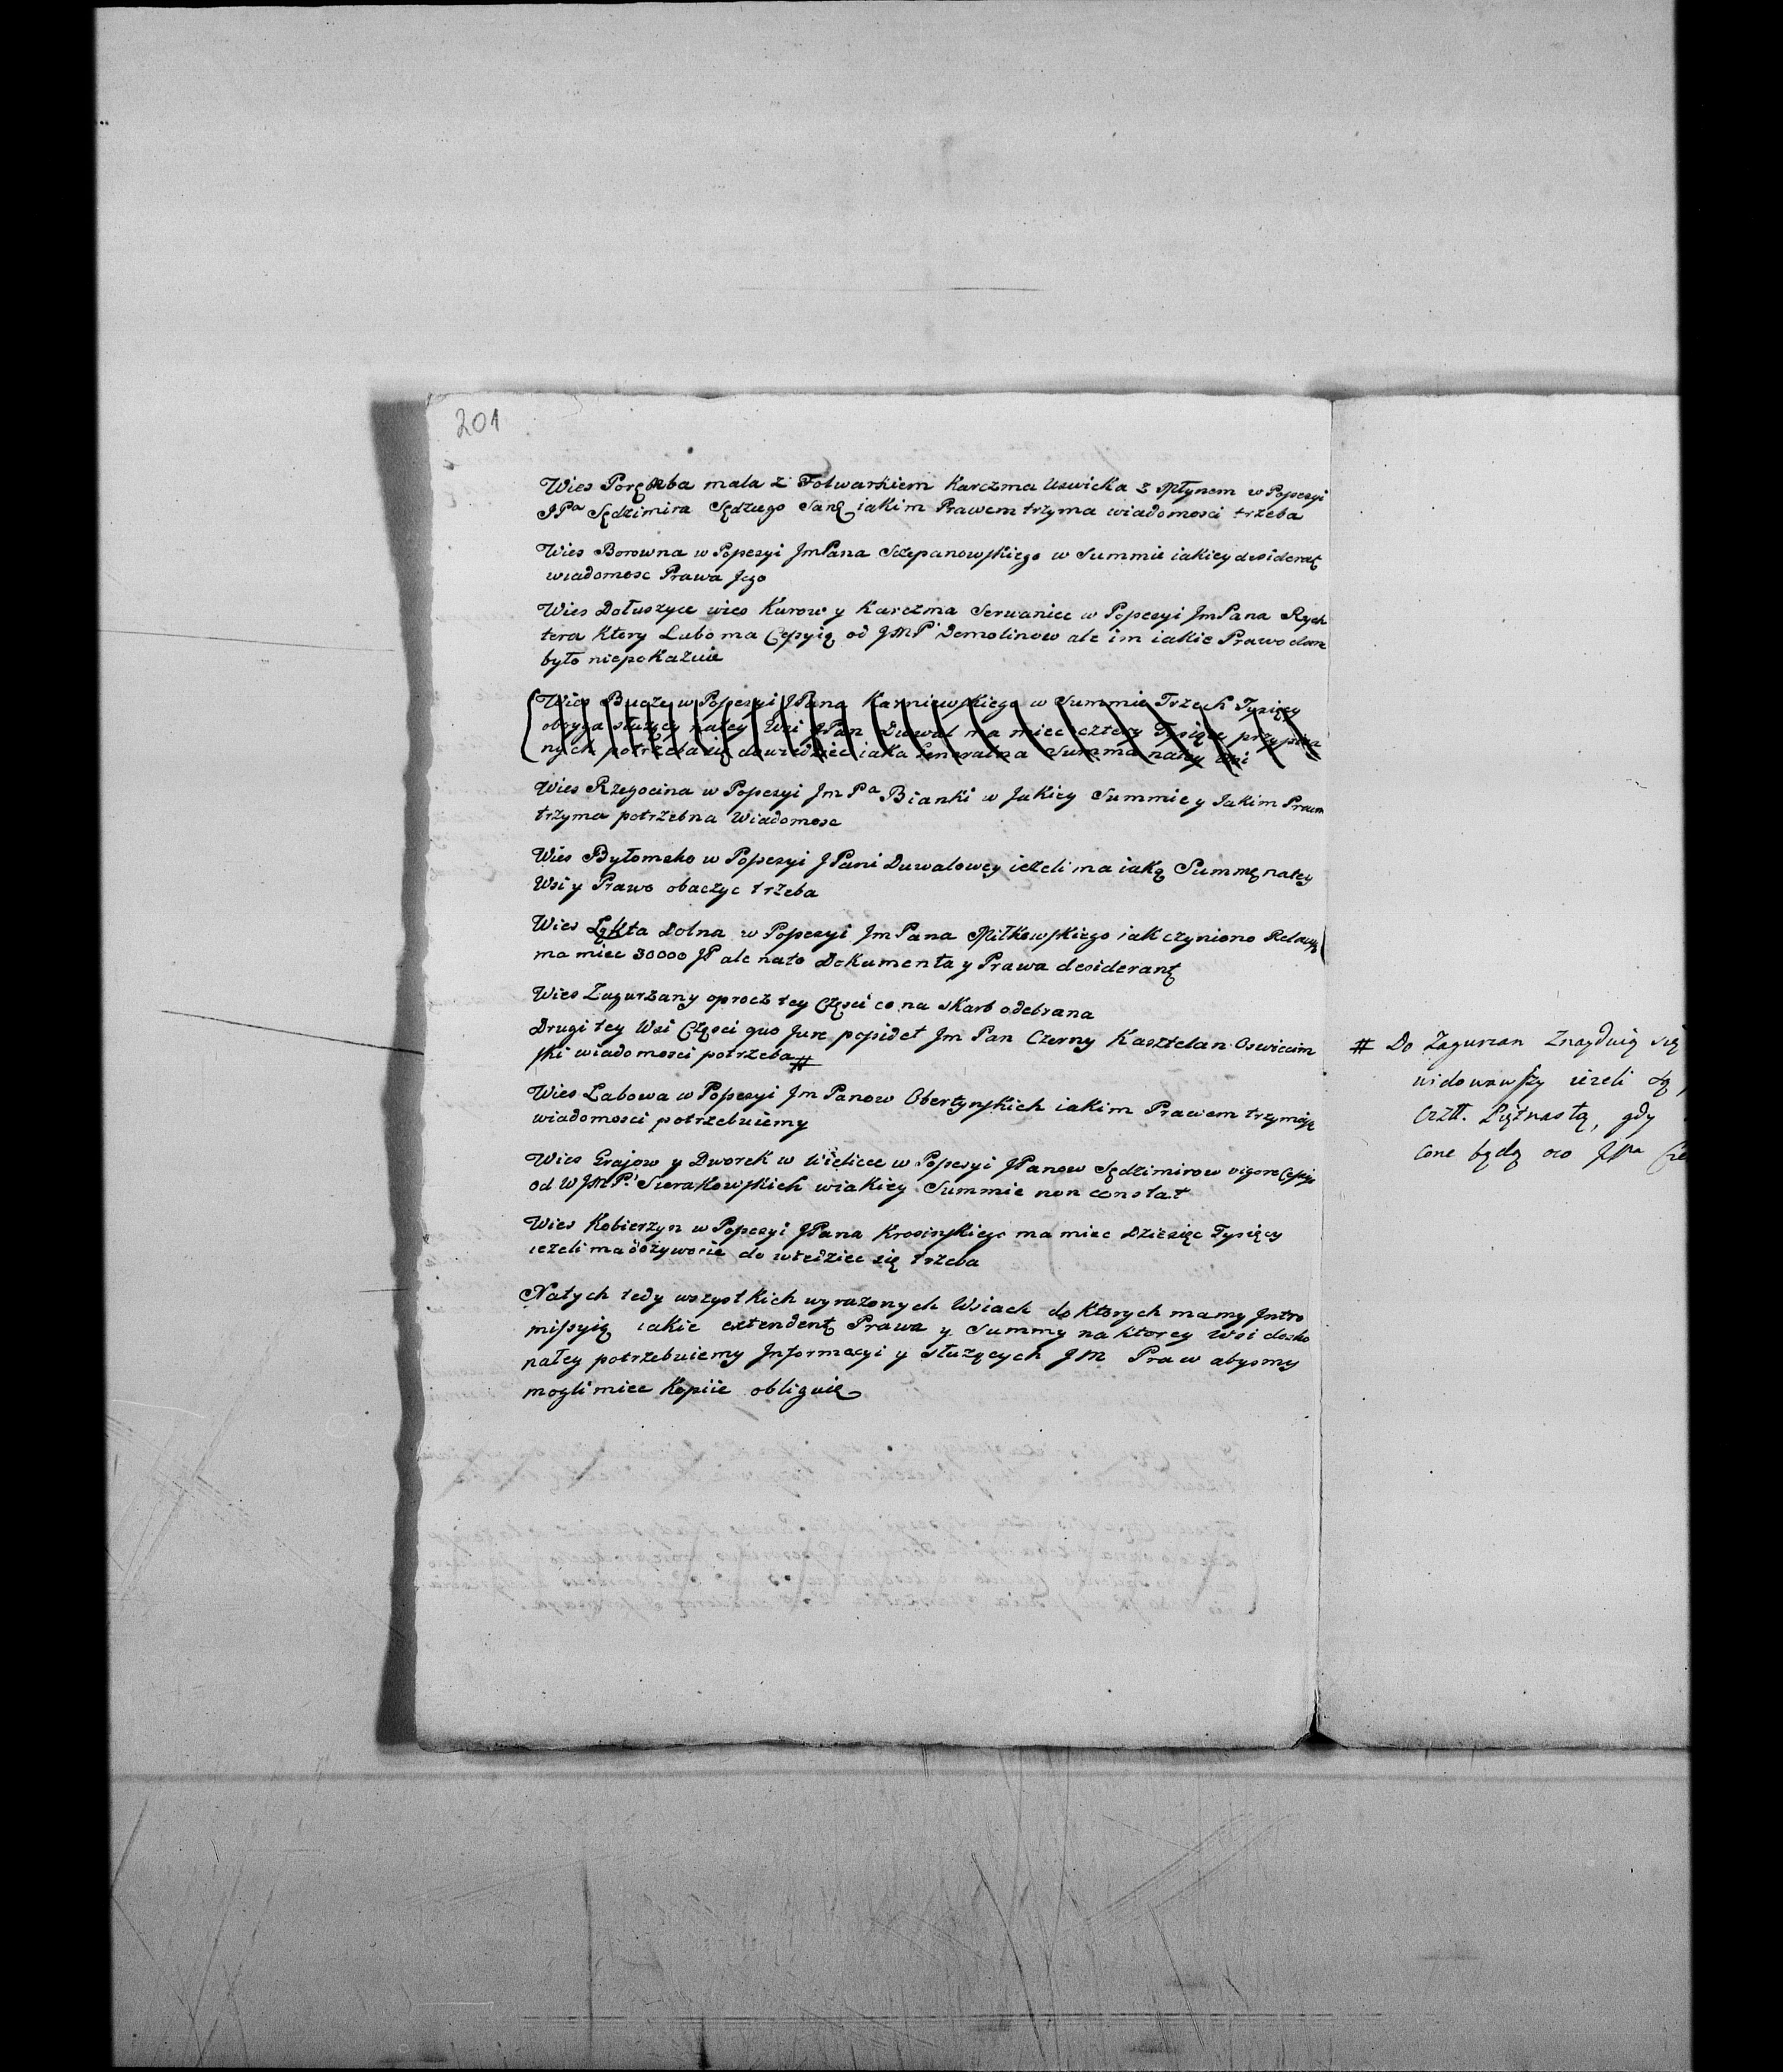 201
Wies Poręmba mala z Folwarkiem Karczma Uswicka z Młynem w Possesyi
JPa Sędzimira Sędziego San: iakim Prawem trzyma wiadomosci trzeba
Wies Borowna w Possesyi Jm Pana Szczepanowskiego w Summie iakiey desiderat
wiadomosc Prawa Jego
Wies Dołuszyce wies Kurow y Karczma Serwaniec w Possesyi Jm Pana Rych
tera Ktory Lubo ma Cessyią od JMP Demolinow ale im iakie Prawo dane
było niepokazuie
Wies Bucze w Possesyi JPana Karniewskiego w Summie Trzech Tysięcy
służący na tey Wsi JPan Duwal ma miec cztery Tysiące przypisa
nych potrzeba się dowiedziec iaka Generalna Summa na tey Wsi
Wies Rzegocina w Possesyi Jm Pa Bianki w Jakiey Summie y Jakim Prawem
trzyma potrzebna Wiadomosc
Wies Bytomsko w Possesyi JPani Duwalowey ieżeli ma iaką Summę na tey
Wsi y Prawo obaczyc trzeba
Wies Łąkta Dolna w Possesyi Jm Pana Miłkowskiego iak czyniono Relacyą
ma miec 30000 ale nato Dokumenta y Prawa desiderant
Wies Zagurzany oprocz tey Części co na skarb odebrana
Drugi tey Wsi Części quo Jure possidet Jm Pan Czerny Kasztelan Oswiecim
ski wiadomosci potrzeba #
Wies Labowa w Possesyi Jm Panow Obertynskich iakim Prawem trzymaią
wiadomosci potrzebuiemy
Wies Grajow y Dworek w Wielicce w Possesyi JPanow Sędzimirow vigore Cessyi
od WJMP. Sierakowskich w iakiey Summie non constat
Wies Kobierzyn w Possesyi JPana Krosinskiego ma miec Dziesięc Tysięcy
ieżeli ma dożywocie do wiedziec się trzeba
Natych tedy wszystkich wyrazonych Wsiach do Ktorych mamy Intro
missyią iakie extendent Prawa y Summy na ktorey Wsi dosko
nałey potrzebuiemy Informacyi y służących JM Praw abysmy
mogli miec Kopiie obliguię
# Do Zagurzan Znayduią się
widowawszy ieżeli są
Piętnastą, gdy
cone będą